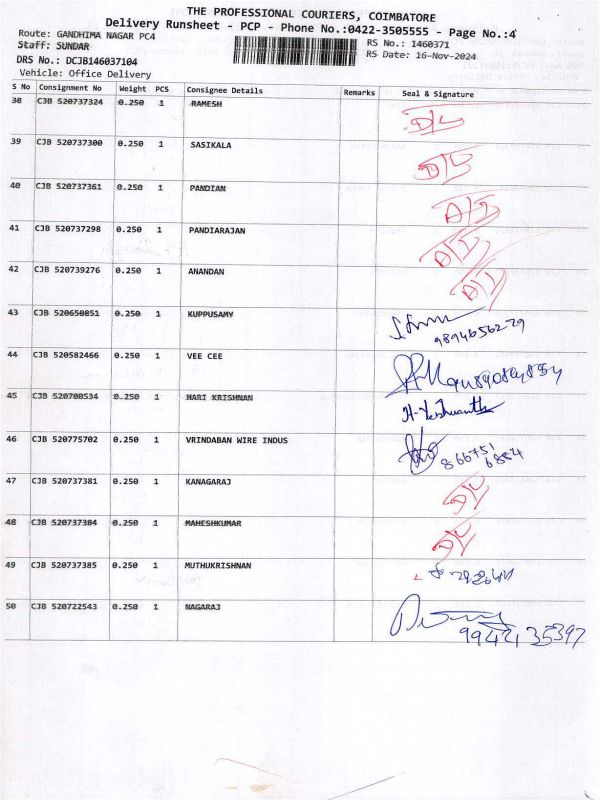 THE PROFESSIONAL COURIERS, COIMBATORE
Delivery Runsheet - PCP - Phone No.:0422-3505555 - Page No.:4
Route: GANDHIMA NAGAR PC4
Staff: SUNDAR
RS No.: 1460371
DRS No.: DCJB146037104
RS Date: 16-Nov-2024
Vehicle: Office Delivery
S No Consignment No Weight PCS Consignee Details Remarks Seal & Signature
38 CJB 520737324 0.250 1 RAMESH D/L
39 CJB 520737300 0.250 1 SASIKALA D/L
40 CJB 520737361 0.250 1 PANDIAN
41 CJB 520737298 0.250 1 PANDIARAJAN
42 CJB 520739276 0.250 1 ANANDAN
43 CJB 520650851 0.250 1 KUPPUSAMY
9894656279
44 CJB 520582466 0.250 1 VEE CEE
45 CJB 520700534 0.250 1 HARI KRISHNAN
46 CJB 520775702 0.250 1 VRINDABAN WIRE INDUS
47 CJB 520737381 0.250 1 KANAGARAJ D/L
48 CJB 520737384 0.250 1 MAHESHKUMAR D/L
49 CJB 520737385 0.250 1 MUTHUKRISHNAN
50 CJB 520722543 0.250 1 NAGARAJ